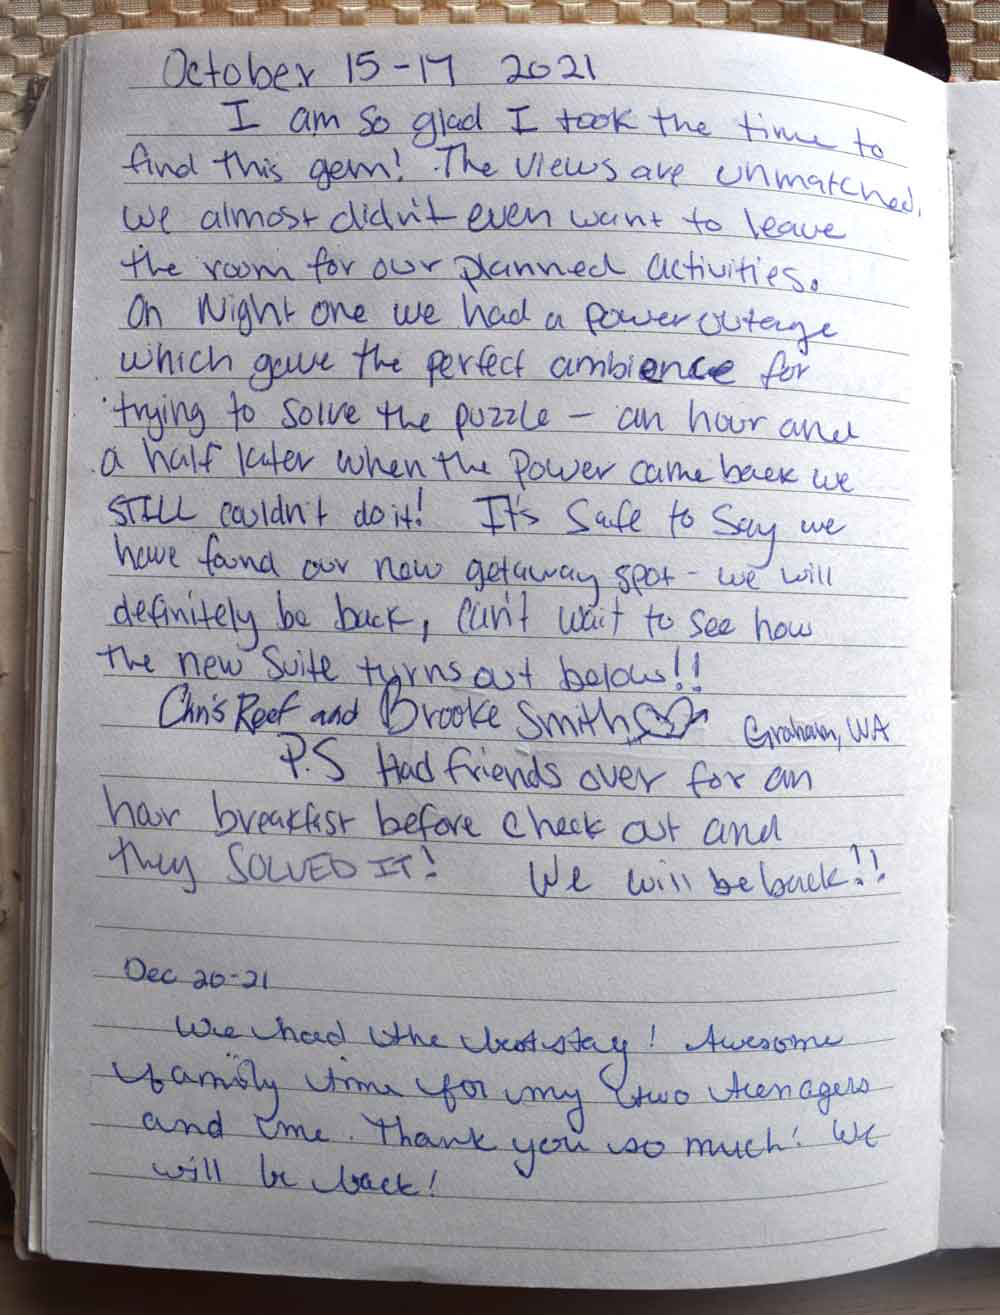 October 15-17 2021
I am so glad I took the time to
find this gem! The views are unmatched.
we almost didn't even want to leave
the room for our planned activities.
On Night one we had a power outage
which gave the perfect ambience for
trying to solve the puzzle – an hour and
a half later when the power came back we
STILL couldn't do it! It's Safe to Say we
have found our new getaway spot - we will
definitely be back, can't wait to see how
the new Suite turns out below!!
Chris Reef and Brooke Smith Graham, WA
P.S Had friends over for an
hour breakfast before check out and
they SOLVED IT! We will be back!!
Dec 20-21
We had the best stay! Awesome
family time for my two teenagers
and me. Thank you so much! We
will be back!